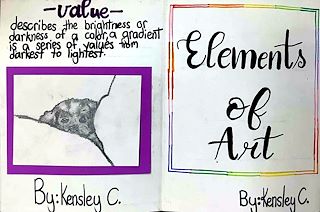 -value-
describes the brightness or
darkness of a color, a gradient
is a series of values from
darkest to lightest.
By: Kensley C.
Elements
of
Art
By: Kensley C.